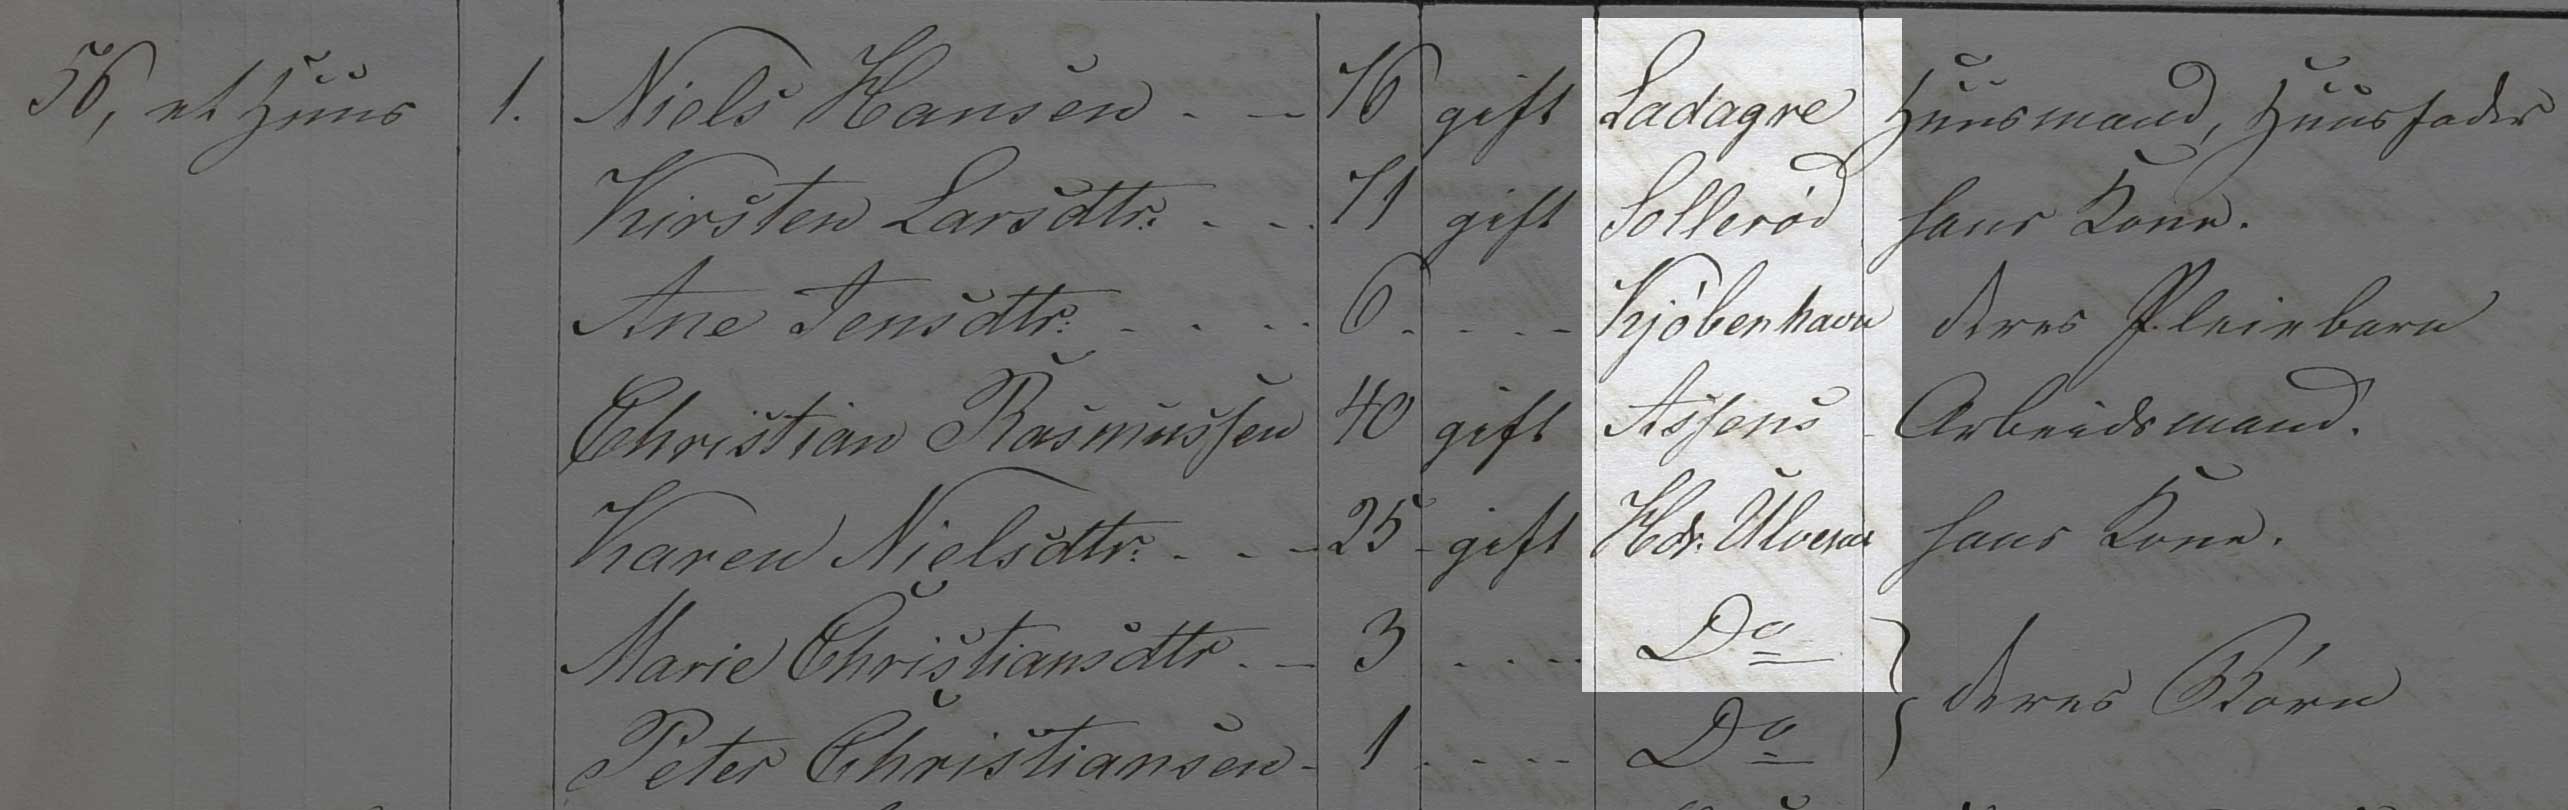 56, et Huus 1. Niels Hansen - - 76 gift Ladagre Huusmand, Huusfader
Kirsten Larsdtr. - - 71 gift Sollerød hans Kone.
Ane Jensdtr. - - - - 6 - - - - Kjøbenhavn deres Pleiebarn
Christian Rasmussen 40 gift Assens Arbeidsmand.
Karen Nielsdtr. - - - 25 - gift Hdr. hans Kone.
Marie Christiansdtr - - 3 - - - - Do
deres Børn
Peter Christiansen - 1 - - - - Do